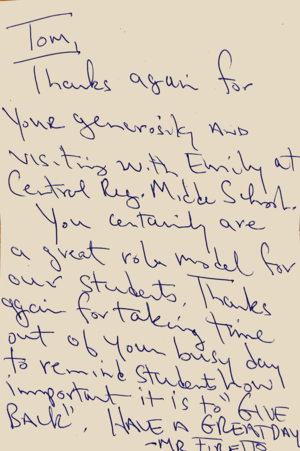 Tom,
Thanks again for
Your generosity AND
visiting with Emily at
Central Reg. Middle School.
You certainly are
a great role model for
our students. Thanks
again for taking time
out of your busy day
to remind students how
important it is to "GIVE
BACK". HAVE A GREAT DAY
-MR